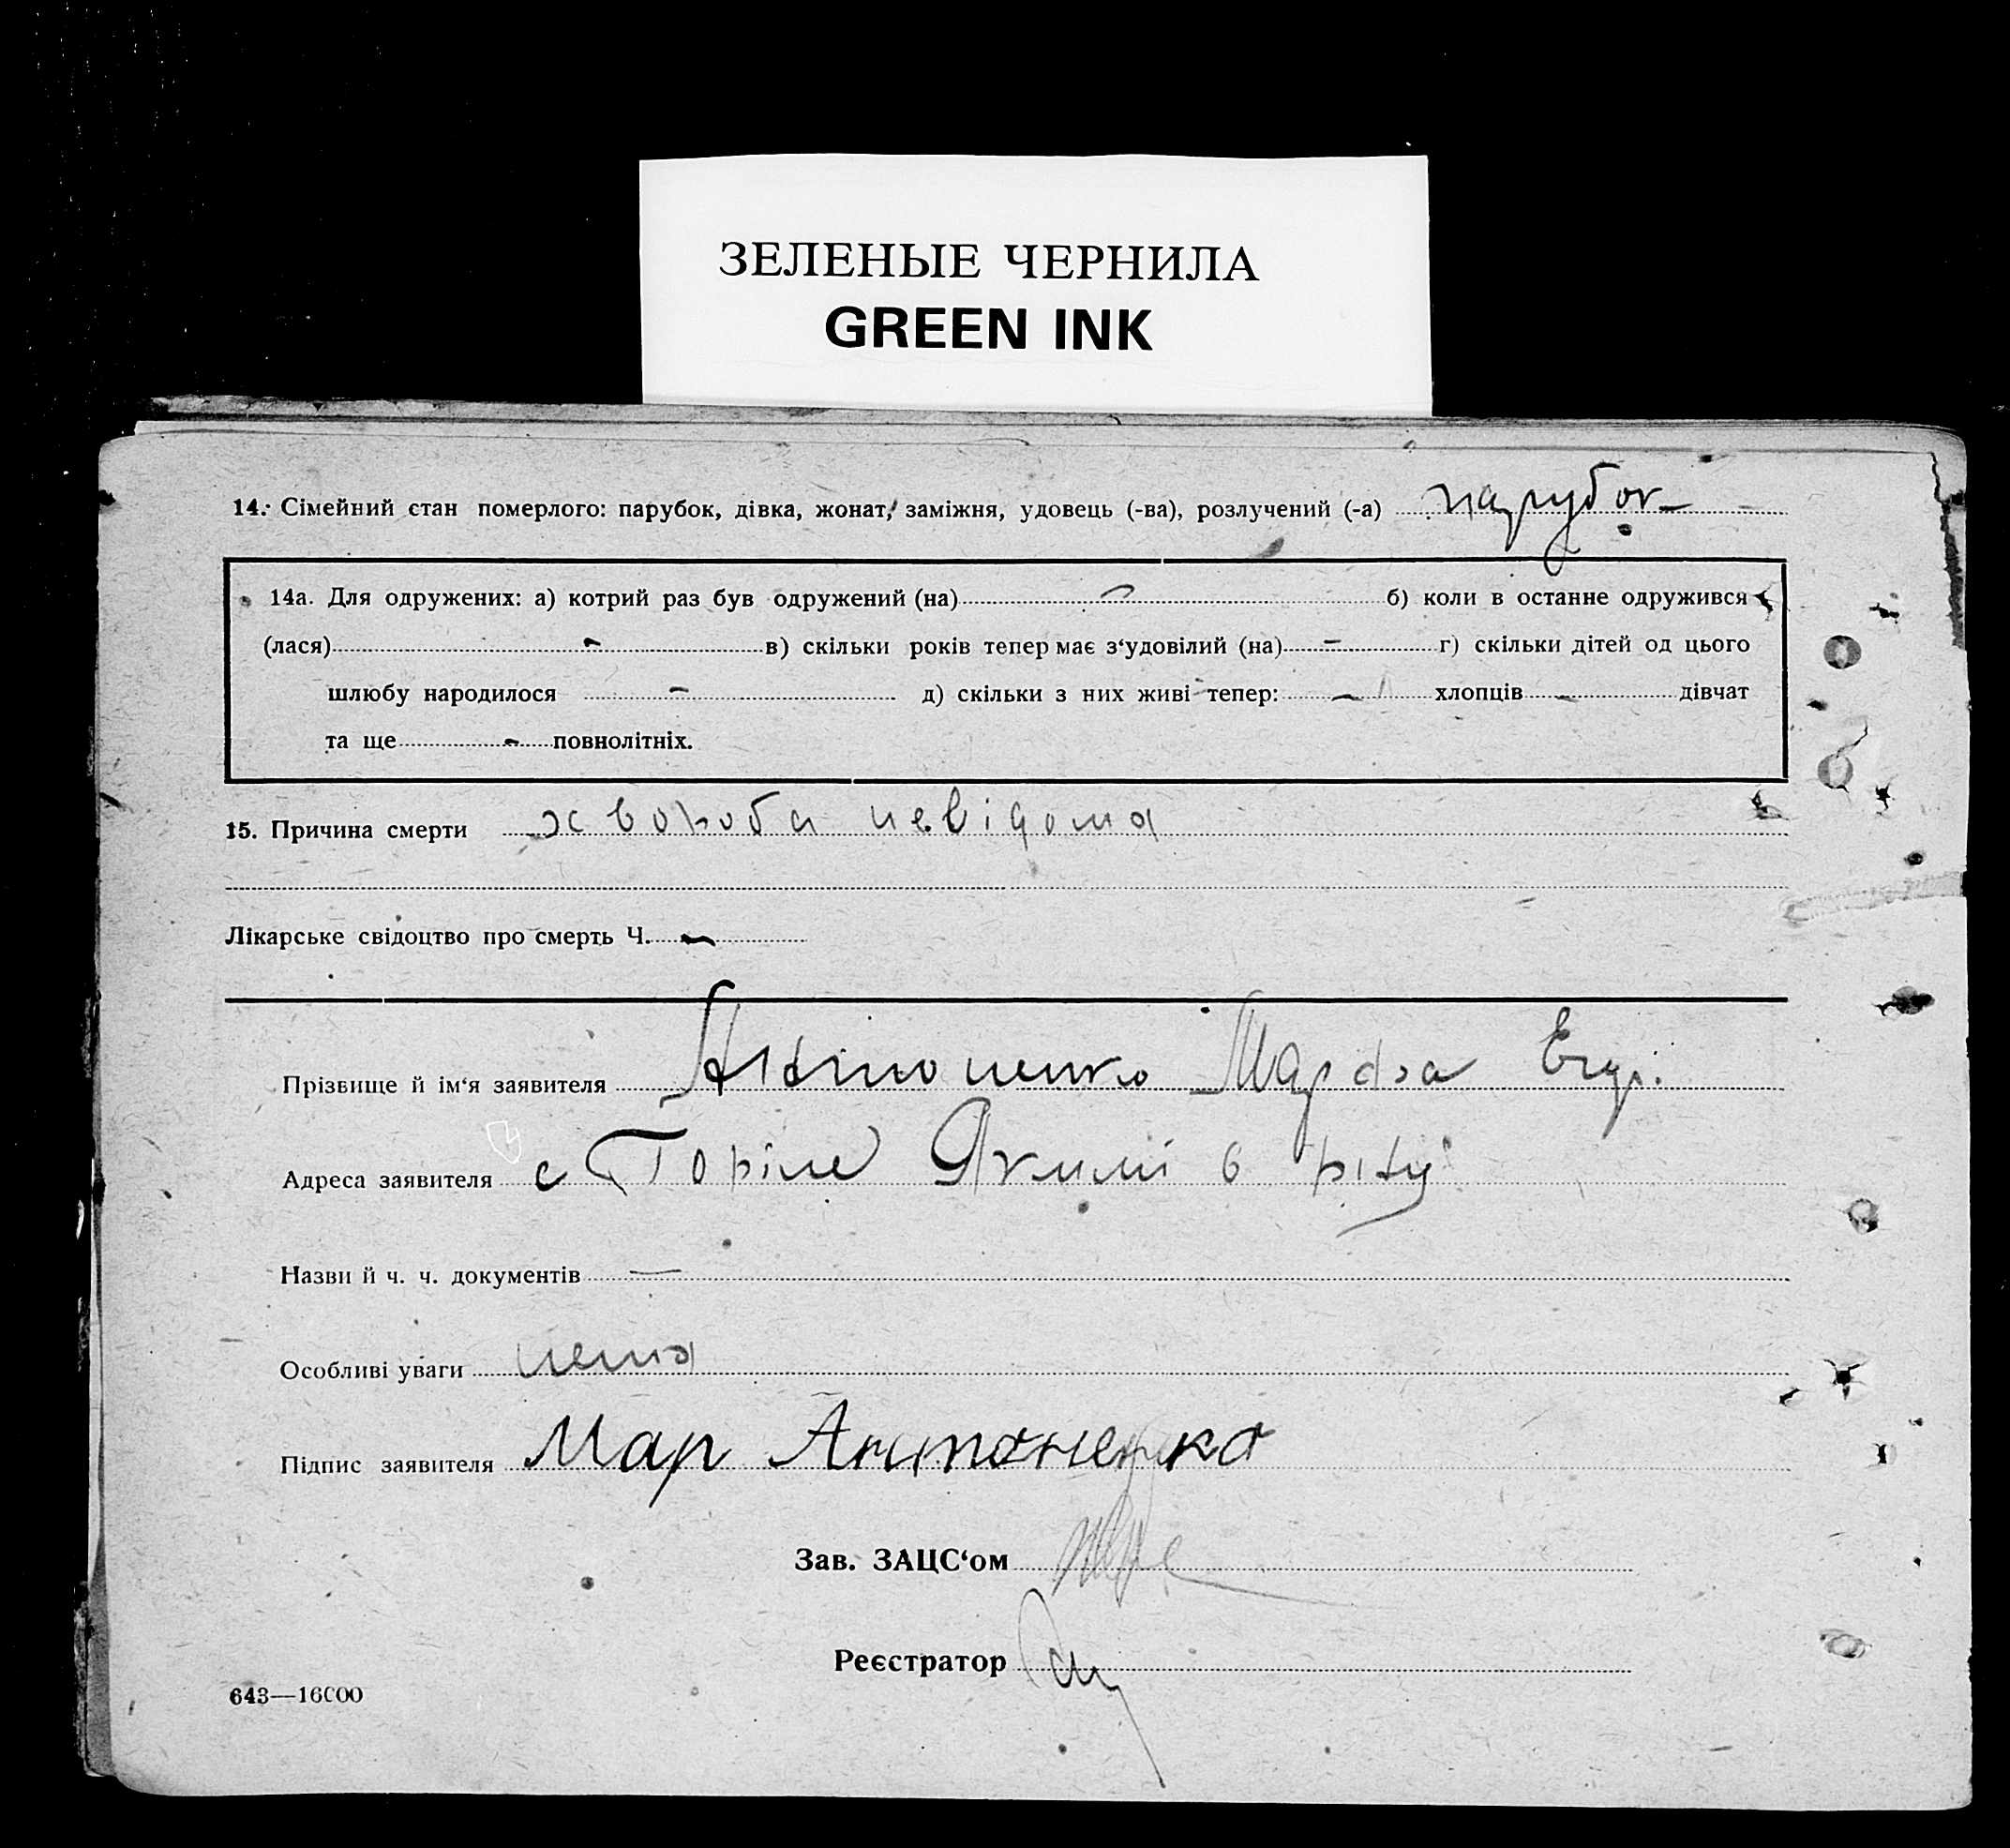 ЗЕЛЕНЫЕ ЧЕРНИЛА
GREEN INK
14. Сімейний стан померлого: парубок, дівка, жонат, заміжня, удовець (-ва), розлучений (-а) парубок
14а. Для одружених: а) котрий раз був одружений (на) - б) коли в останне одружився
(лася) - в) скільки років тепер має з‘удовілий (на) - г) скільки дітей од цього
шлюбу народилося - д) скільки з них живі тепер: - хлопців - дівчат
та ще - повнолітніх.
15. Причина смерти хвороба невідома
Лікарське свідоцтво про смерть Ч. -
Прізвище й ім‘я заявителя Антоненко Марфа
Адреса заявителя с
Назви й ч. ч. документів —
Особливі уваги нема
Підпис заявителя Мар Антоненко
Зав. ЗАЦС‘ом
Реєстратор
643—16000